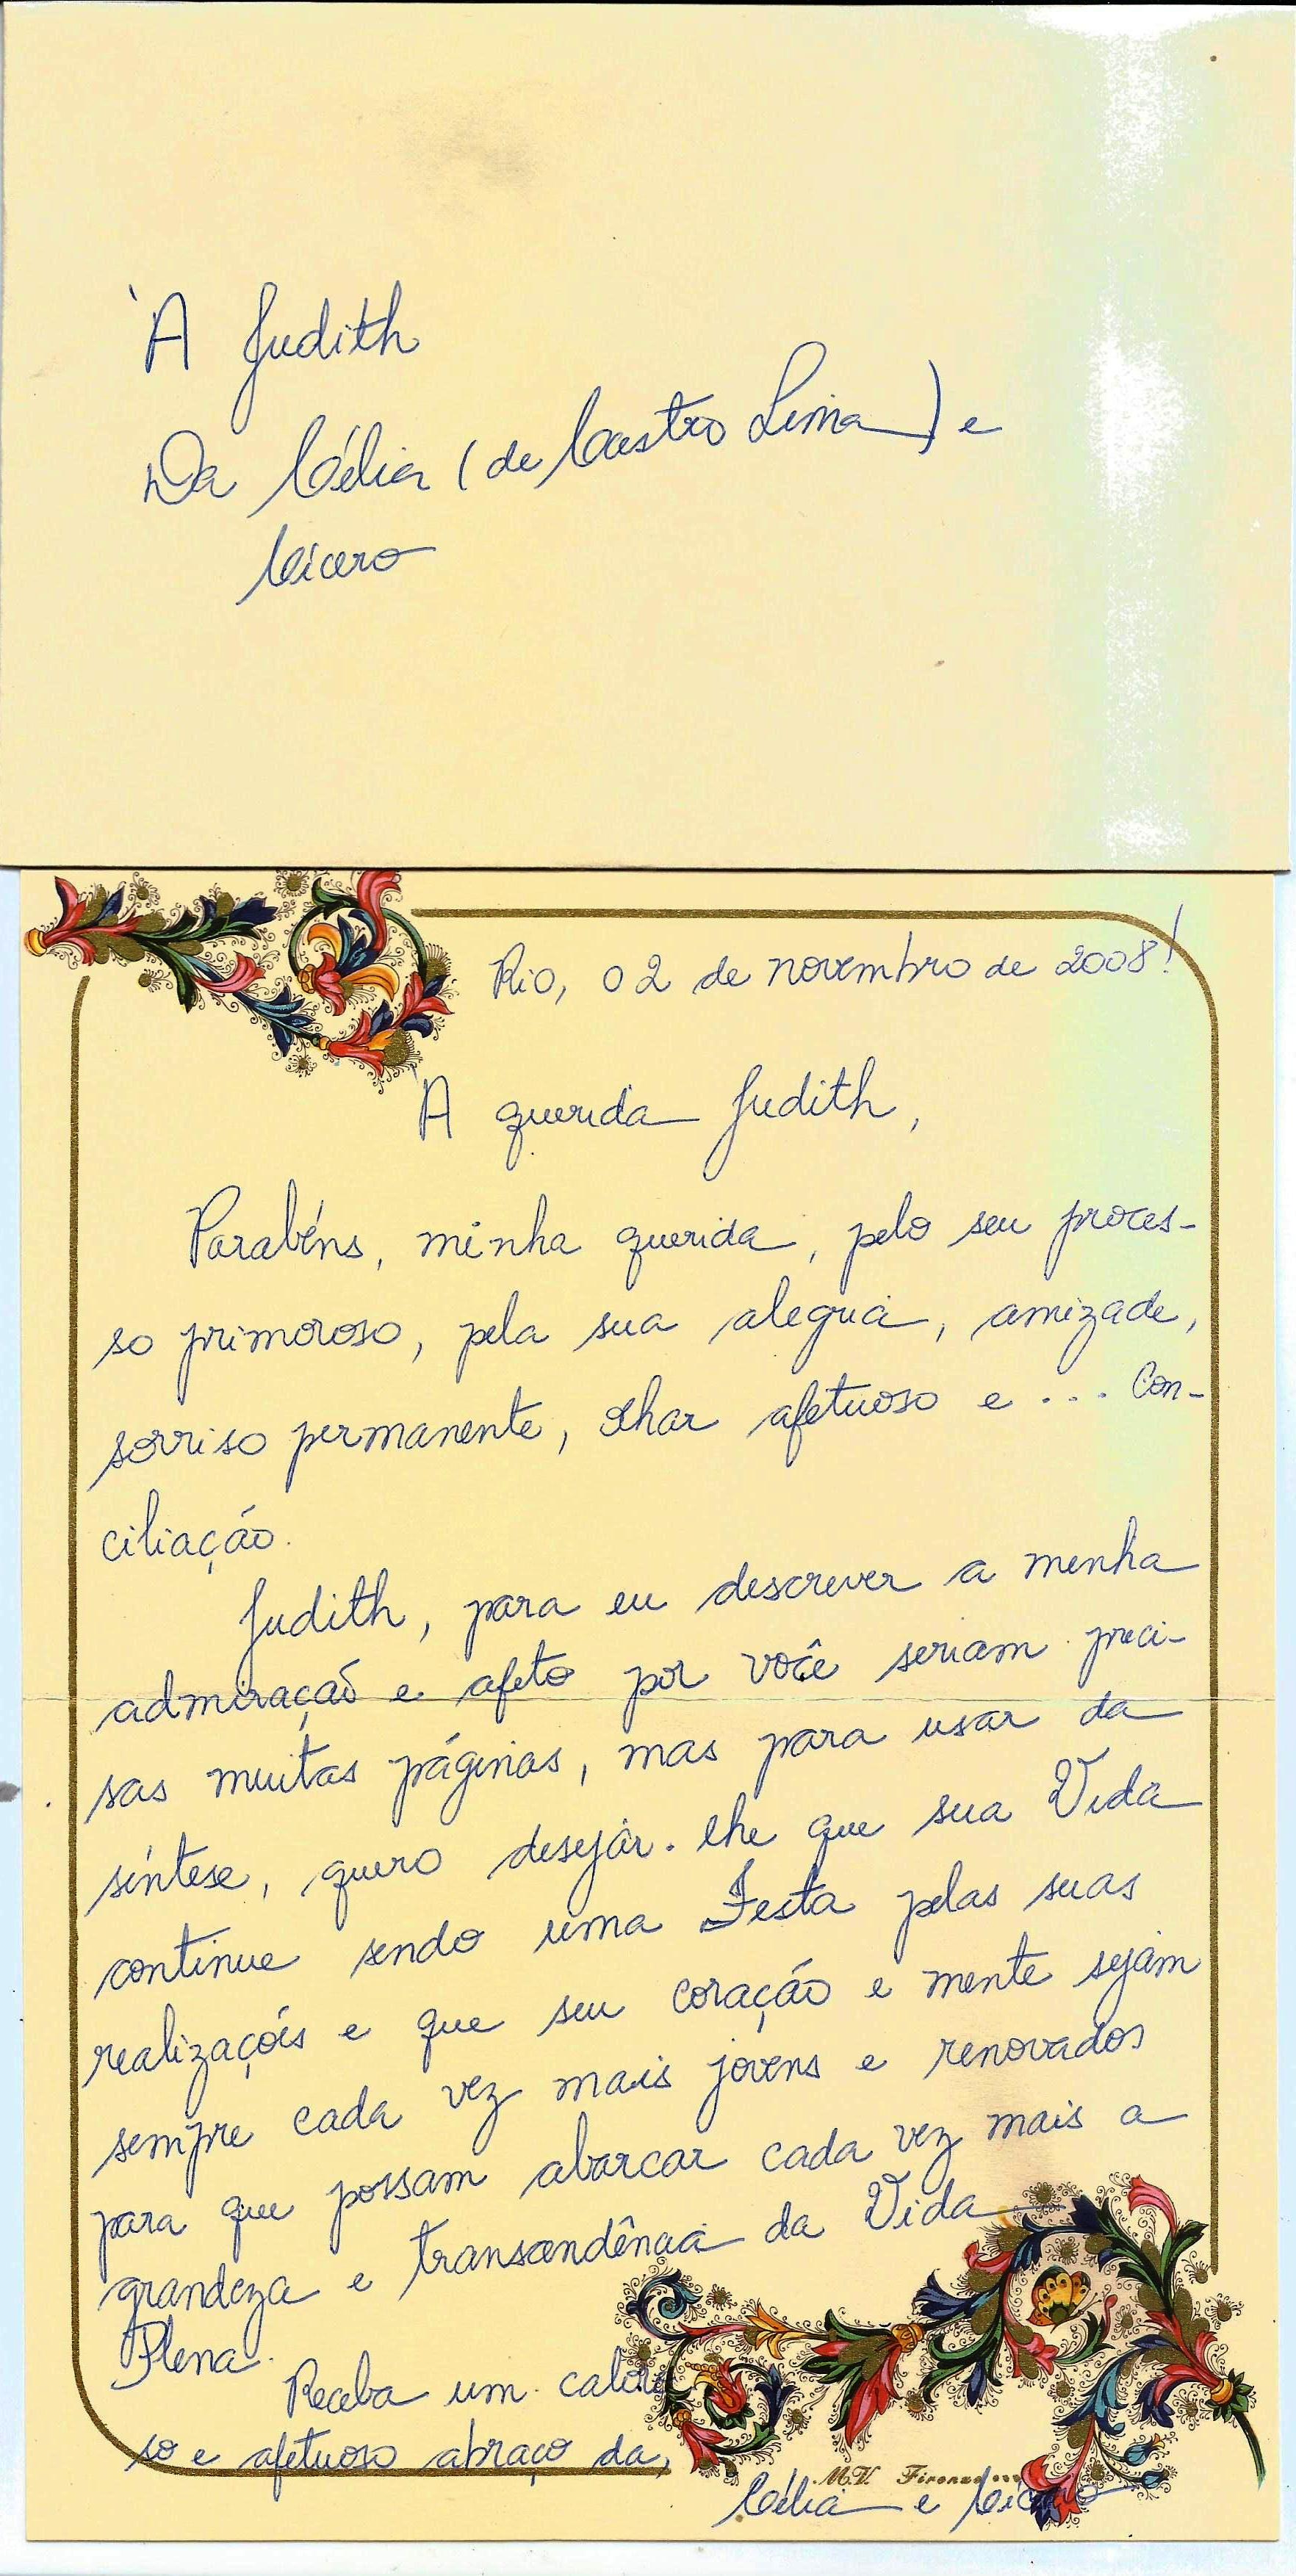 À Judith
Da Célia (de Castro Lima) e
Cícero
Rio, 02 de novembro de 2008!
À querida Judith,
Parabéns, minha querida, pelo seu proces-
so primoroso, pela sua alegria, amizade,
sorriso permanente, olhar afetuoso e ... Con-
ciliação.
Judith, para eu descrever a minha
admiração e afeto por você seriam preci-
sas muitas páginas, mas para usar da
síntese, quero desejar-lhe que sua Vida
continue sendo uma Festa pelas suas
realizações e que seu coração e mente sejam
sempre cada vez mais jovens e renovados
para que possam abarcar cada vez mais a
grandeza e transcendência da Vida
Plena.
Receba um caloro
so e afetuoso abraço da,
M.V. Firenze
Célia e Cícero